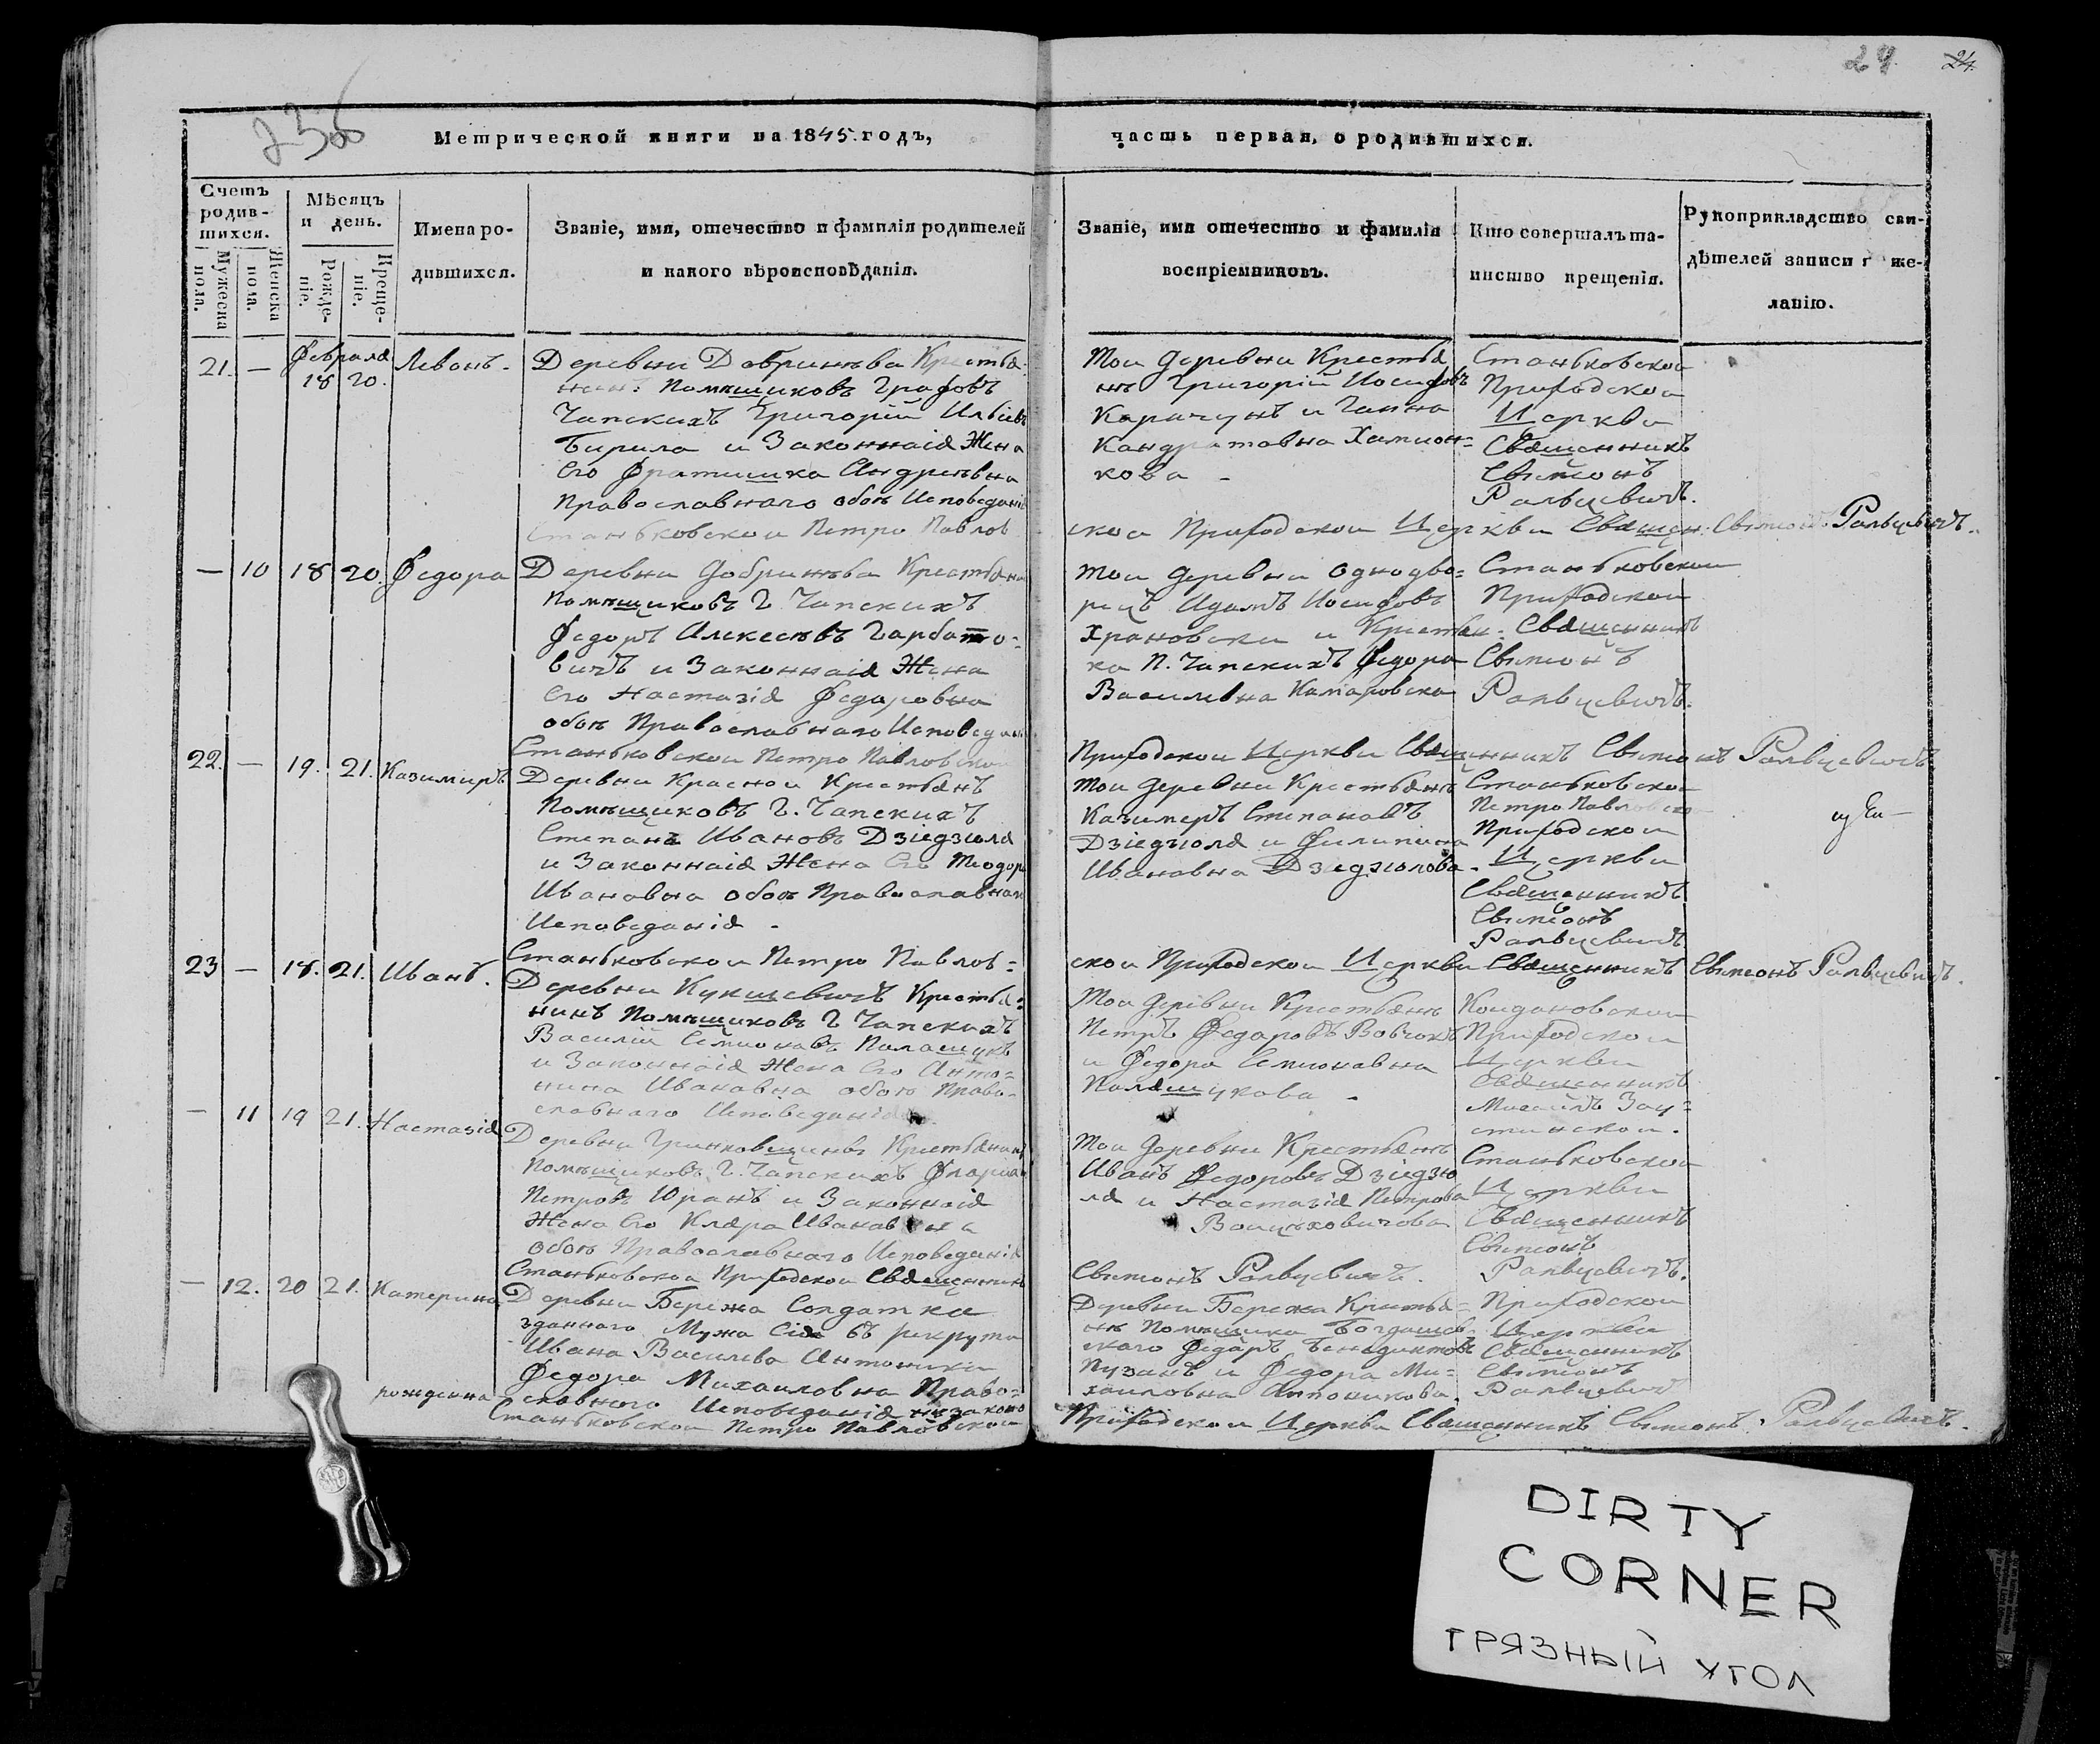 24
24.
Метрической книги на 1845 годъ,
часть первая, о родившихся.
Счетъ родив-шихся.
Мужеска пола.
Женска пола.
Мѣсяцъ и день.
Рожде-ніе.
Креще-ніе.
Имена ро-
дившихся.
Званіе, имя, отечество и фамилія родителей
и какого вѣроисповѣданія.
Званіе, имя отечество и фамилія
воспріемниковъ.
Кто совершалъ та-
инство крещенія.
Рукоприкладство сви-
дѣтелей записи же-
ланію.
21. — Февраля 18 20. Левонъ.
Деревни Добринева Крестья
нин. Помѣщиковъ Графовъ
Чапскихъ Григорій Ильіевъ
Бирила и Законнаія Жена
Его Андреевна
Православнаго обоѣ Исповеданія
Станьковскои Петро Павлов
Тои деревни Крестья
нъ Григорій Иосифовъ
Карачунъ и Ганна
Кандратовна
кова -
Станьковскои
Приходскои
Церкви
Священникъ
Свимонъ
Ральцевичъ.
скои Приходскои Церкви Священ. Свимонъ Ральцевичъ.
— 10 18 20. Федора
Деревни Добринева Крестьяни
Помѣщиковъ Г. Чапскихъ
Федоръ Алексеевъ Гарбато-
вичъ и Законнаія Жена
Его Настазія Федоровна
обоѣ Православнаго Исповедан
Станьковскои Петро Павловскои
Тои деревни Однодво-
рецъ Адамъ Иосифовъ
Храновски и Крестьян-
ка П. Чапскихъ Федора
Василевна Камаровска
Станьковскои
Приходскои
Священникъ
Свимонъ
Ральцевичъ.
Приходскои Церкви Священникъ Свимонъ Ральцевичъ
22. — 19. 21. Казимиръ
Деревни Краснои Крестьянъ
Помѣщиковъ Г. Чапскихъ
Степанъ Ивановъ Дзіедзюля
и Законнаія Жена Его Теодора
Ивановна обоѣ Православнаго
Исповеданія -
Тои деревни Крестьянъ
Казимеръ Степановъ
Дзіедзюля и Филипина
Ивановна Дзіедзюлова.
Станьковскои
Петро Павловскои
Приходскои
Церкви
Священникъ
Свимонъ
Ральцевичъ
23 — 18. 21. Иванъ.
Станьковскои Петро Павлов-
скои Приходскои Церкви Священникъ Свимонъ Ральцевичъ.
Деревни Кукшевичъ Крестья-
нинъ Помѣщиковъ Г Чапскихъ
Василій Семионавъ Палащукъ
и Законнаія Жена Его Анто-
нина Ивановна обоѣ Право-
славнаго Исповеданія.
Тои деревни Крестьянъ
Петръ Федаровъ Вовчокъ
и Федора Семионавна
Палащукова -
Коидановскои
Приходскои
Церкви
Священникъ
— 11 19 21. Настазія
Деревни Гринковщины Крестьянинъ
Помѣщиковъ Г. Чапскихъ
Петровъ Юранъ и Законнаія
Жена Его Клара Ивановна
обоѣ Православнаго Исповеданія
Станьковскои Приходскои Священникъ
Тои Деревни Крестьянъ
Иванъ Федоровъ Дзіедзю
ля и Настазія Петрова
Воицеховичова
Станьковскои
Церкви
Священникъ
Свимонъ
Ральцевичъ.
Свимонъ Ральцевичъ.
— 12. 20 21. Катерина
Деревни Бережа Солдатки
зданнаго Мужа Сія въ рекруты
Ивана Василева
Федора Михаиловна Право-
рожденна славнаго Исповеданія незаконо
Станьковскои Петро Павловскои
Деревни Бережа Крестья-
нъ Помѣщика Богдашев
скаго Федаръ Бенедиктовъ
Пузанъ и Федора Ми-
хаиловна
Приходскои
Церкви
Священникъ
Свимонъ
Ральцевич
Приходскои Церкви Священникъ Свимонъ Ральцевичъ.
DIRTY
CORNER
ГРЯЗНЫЙ УГОЛ